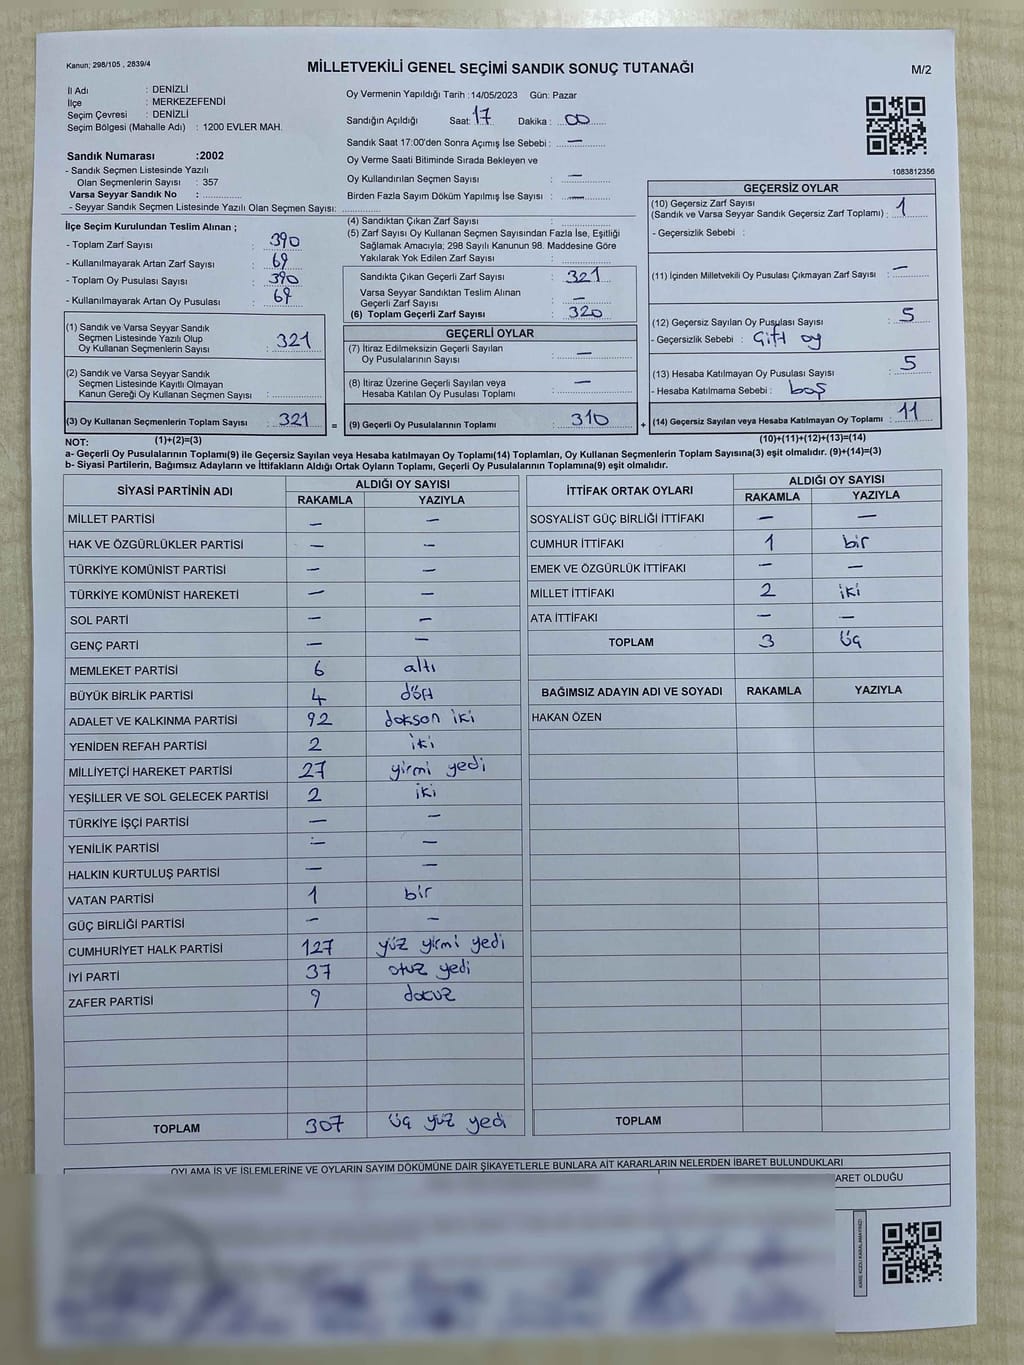 Kanun; 298/105 , 2839/4
MİLLETVEKİLİ GENEL SEÇİMİ SANDIK SONUÇ TUTANAĞI
M/2
İl Adı : DENİZLİ
İlçe : MERKEZEFENDİ
Seçim Çevresi : DENİZLİ
Seçim Bölgesi (Mahalle Adı) : 1200 EVLER MAH.
Sandık Numarası :2002
- Sandık Seçmen Listesinde Yazılı
Olan Seçmenlerin Sayısı : 357
Varsa Seyyar Sandık No :
- Seyyar Sandık Seçmen Listesinde Yazılı Olan Seçmen Sayısı:
Oy Vermenin Yapıldığı Tarih :14/05/2023 Gün: Pazar
Sandığın Açıldığı Saat: 17 Dakika : 00
Sandık Saat 17:00'den Sonra Açımış İse Sebebi : —
Oy Verme Saati Bitiminde Sırada Bekleyen ve
Oy Kullandırılan Seçmen Sayısı : —
Birden Fazla Sayım Döküm Yapılmış İse Sayısı : —
1083812356
İlçe Seçim Kurulundan Teslim Alınan ;
- Toplam Zarf Sayısı : 390
- Kullanılmayarak Artan Zarf Sayısı : 69
- Toplam Oy Pusulası Sayısı : 390
- Kullanılmayarak Artan Oy Pusulası : 69
(1) Sandık ve Varsa Seyyar Sandık
Seçmen Listesinde Yazılı Olup
Oy Kullanan Seçmenlerin Sayısı : 321
(2) Sandık ve Varsa Seyyar Sandık
Seçmen Listesinde Kayıtlı Olmayan
Kanun Gereği Oy Kullanan Seçmen Sayısı :
(3) Oy Kullanan Seçmenlerin Toplam Sayısı : 321
(4) Sandıktan Çıkan Zarf Sayısı :
(5) Zarf Sayısı Oy Kullanan Seçmen Sayısından Fazla İse, Eşitliği
Sağlamak Amacıyla; 298 Sayılı Kanunun 98. Maddesine Göre
Yakılarak Yok Edilen Zarf Sayısı :
Sandıkta Çıkan Geçerli Zarf Sayısı : 321
Varsa Seyyar Sandıktan Teslim Alınan
Geçerli Zarf Sayısı : —
(6) Toplam Geçerli Zarf Sayısı : 320
GEÇERLİ OYLAR
(7) İtiraz Edilmeksizin Geçerli Sayılan
Oy Pusulalarının Sayısı : —
(8) İtiraz Üzerine Geçerli Sayılan veya
Hesaba Katılan Oy Pusulası Toplamı : —
= (9) Geçerli Oy Pusulalarının Toplamı : 310 +
GEÇERSİZ OYLAR
(10) Geçersiz Zarf Sayısı
(Sandık ve Varsa Seyyar Sandık Geçersiz Zarf Toplamı) : 1
- Geçersizlik Sebebi :
(11) İçinden Milletvekili Oy Pusulası Çıkmayan Zarf Sayısı : —
(12) Geçersiz Sayılan Oy Pusulası Sayısı : 5
- Geçersizlik Sebebi : Çift oy
(13) Hesaba Katılmayan Oy Pusulası Sayısı : 5
- Hesaba Katılmama Sebebi : boş
(14) Geçersiz Sayılan veya Hesaba Katılmayan Oy Toplamı : 11
NOT: (1)+(2)=(3) (10)+(11)+(12)+(13)=(14)
a- Geçerli Oy Pusulalarının Toplamı(9) ile Geçersiz Sayılan veya Hesaba katılmayan Oy Toplamı(14) Toplamları, Oy Kullanan Seçmenlerin Toplam Sayısına(3) eşit olmalıdır. (9)+(14)=(3)
b- Siyasi Partilerin, Bağımsız Adayların ve İttifakların Aldığı Ortak Oyların Toplamı, Geçerli Oy Pusulalarının Toplamına(9) eşit olmalıdır.
SİYASİ PARTİNİN ADI ALDIĞI OY SAYISI
RAKAMLA YAZIYLA
MİLLET PARTİSİ — —
HAK VE ÖZGÜRLÜKLER PARTİSİ — —
TÜRKİYE KOMÜNİST PARTİSİ — —
TÜRKİYE KOMÜNİST HAREKETİ — —
SOL PARTİ — —
GENÇ PARTİ — —
MEMLEKET PARTİSİ 6 altı
BÜYÜK BİRLİK PARTİSİ 4 dört
ADALET VE KALKINMA PARTİSİ 92 doksan iki
YENİDEN REFAH PARTİSİ 2 iki
MİLLİYETÇİ HAREKET PARTİSİ 27 yirmi yedi
YEŞİLLER VE SOL GELECEK PARTİSİ 2 iki
TÜRKİYE İŞÇİ PARTİSİ — —
YENİLİK PARTİSİ — —
HALKIN KURTULUŞ PARTİSİ — —
VATAN PARTİSİ 1 bir
GÜÇ BİRLİĞİ PARTİSİ — —
CUMHURİYET HALK PARTİSİ 127 yüz yirmi yedi
İYİ PARTİ 37 otuz yedi
ZAFER PARTİSİ 9 dokuz
TOPLAM 307 üç yüz yedi
İTTİFAK ORTAK OYLARI ALDIĞI OY SAYISI
RAKAMLA YAZIYLA
SOSYALİST GÜÇ BİRLİĞİ İTTİFAKI — —
CUMHUR İTTİFAKI 1 bir
EMEK VE ÖZGÜRLÜK İTTİFAKI — —
MİLLET İTTİFAKI 2 iki
ATA İTTİFAKI — —
TOPLAM 3 Üç
BAĞIMSIZ ADAYIN ADI VE SOYADI RAKAMLA YAZIYLA
HAKAN ÖZEN
TOPLAM
OYLAMA İŞ VE İŞLEMLERİNE VE OYLARIN SAYIM DÖKÜMÜNE DAİR ŞİKAYETLERLE BUNLARA AİT KARARLARIN NELERDEN İBARET BULUNDUKLARI
ARET OLDUĞU